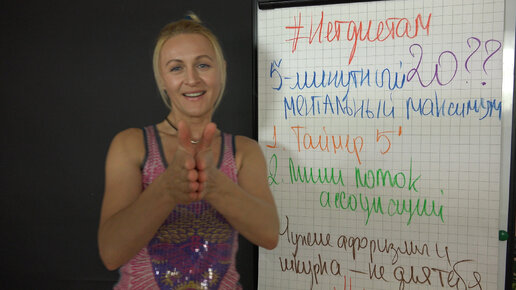 #Нетдиетам
5-минутный 20??
ментальный максимум
1. Таймер 5'
2. Пиши поток
ассоциаций
Чужие афоризмы и
шкурка – не для тебя
!!